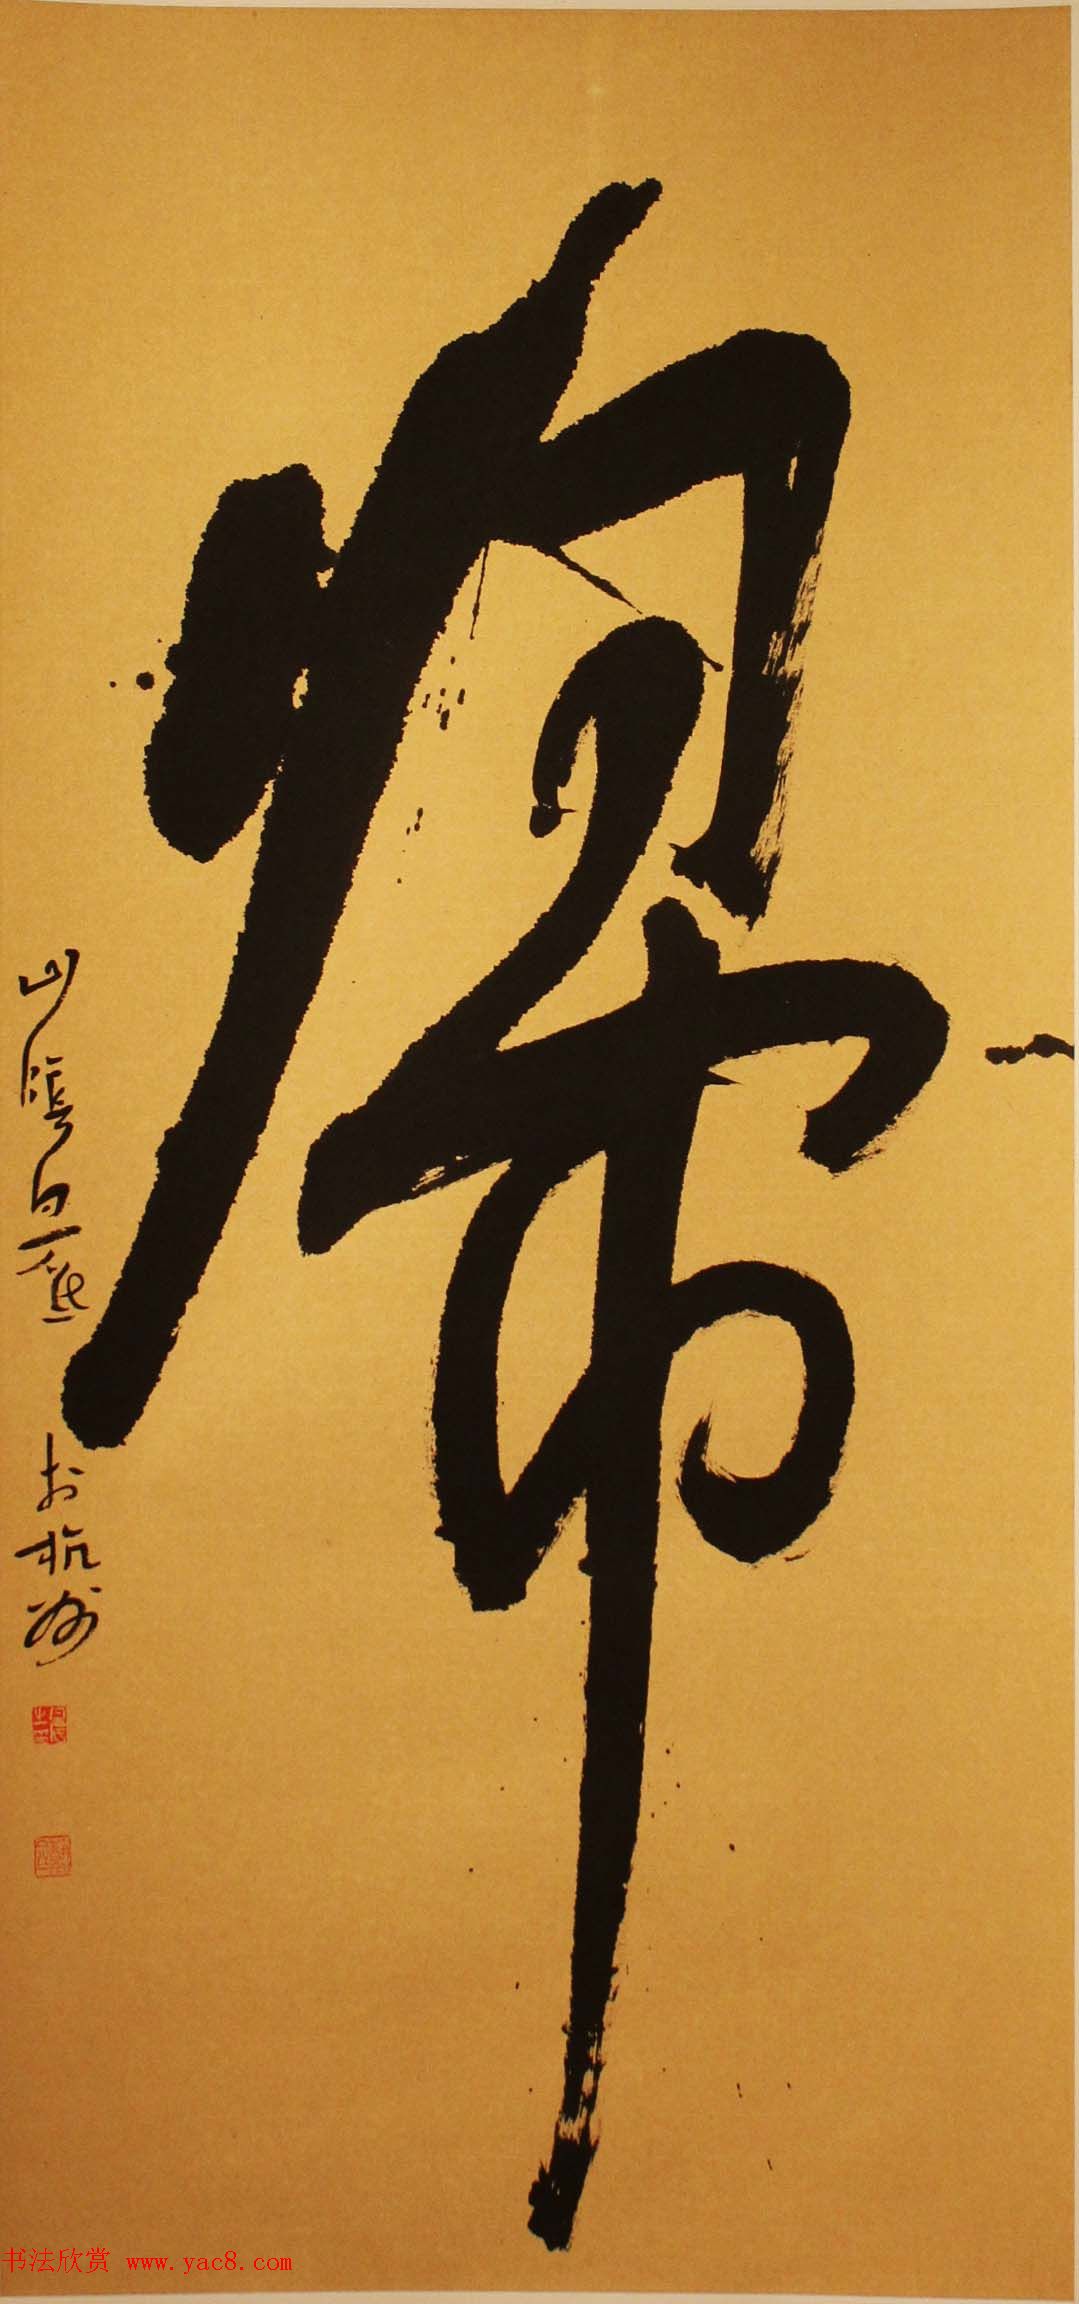 歸
山陰白砥於杭州
书法欣赏 www.yac8.com